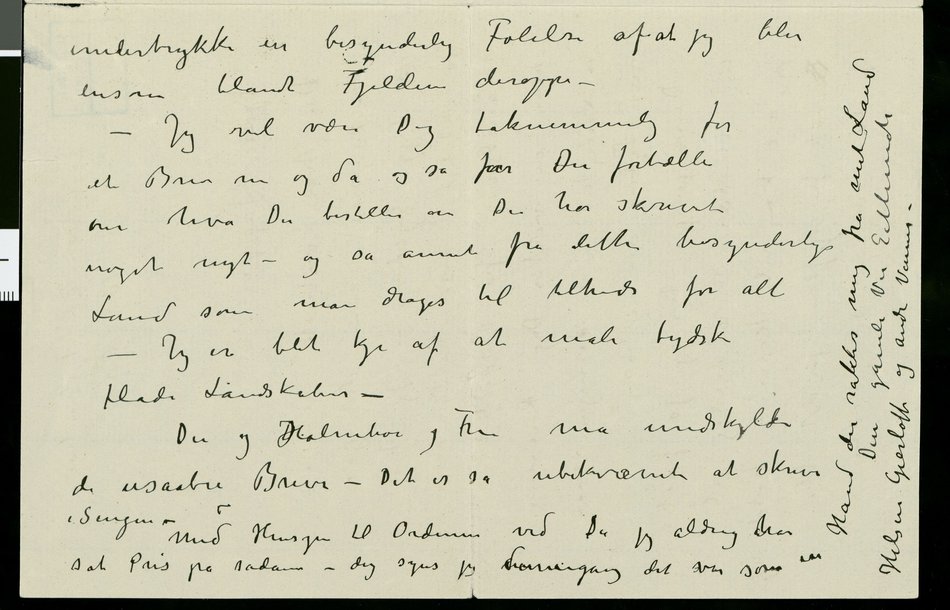 undertrykke en besynderlig Følelse af at jeg blir
ensom blandt Fjeldene deroppe –
– Jeg vil være Dig taknemmelig for
et Brev nu og da og så får Du fortælle
om hva Du bestiller om Du har skrevet
noget nyt – og så annet fra dette besynderlige
Land som man drages til tiltrods for alt
– Jeg er blet kje af at male tydsk
flade Landskaber –
Du og Holmboe og Frue må undskylde
de usaabre Breve – Det er så ubekvæmt at skrive
i Sengen –
Med Hensyn til Ordenen ved Du jeg aldrig har
sat Pris på sådant – dog synes jeg denne gang det var som en
Hånd der raktes mig fra mit Land
Din gamle Ven E Munch
Hilsen Gierløff og andre Venner –